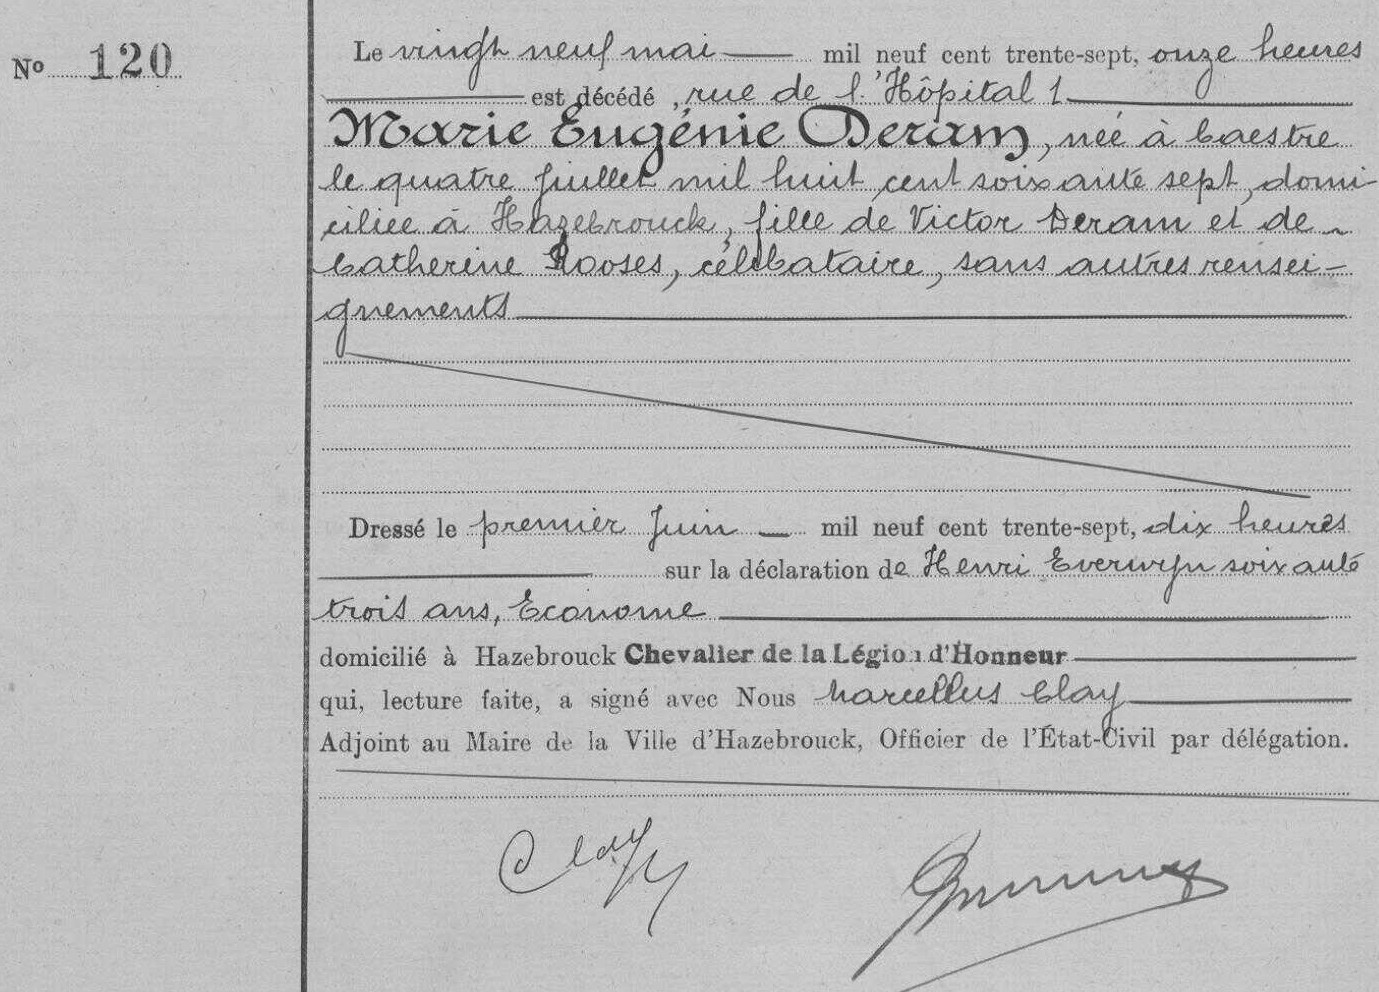 No 120
Le vingt neuf mai mil neuf cent trente-sept, onze heures
est décédé, rue de l'Hôpital 1
Marie Eugénie Deram, née à Caestre
le quatre juillet mil huit cent soixante sept, domi-
ciliée à Hazebrouck, fille de Victor Deram et de
Catherine Rooses, célibataire, sans autres rensei-
gnements
Dressé le premier Juin mil neuf cent trente-sept, dix heures
sur la déclaration de Henri Everwyn soixante
trois ans, Econome
domicilié à Hazebrouck Chevalier de la Légion d'Honneur
qui, lecture faite, a signé avec Nous Marcellus Clay
Adjoint au Maire de la Ville d'Hazebrouck, Officier de l'État-Civil par délégation.
Clay